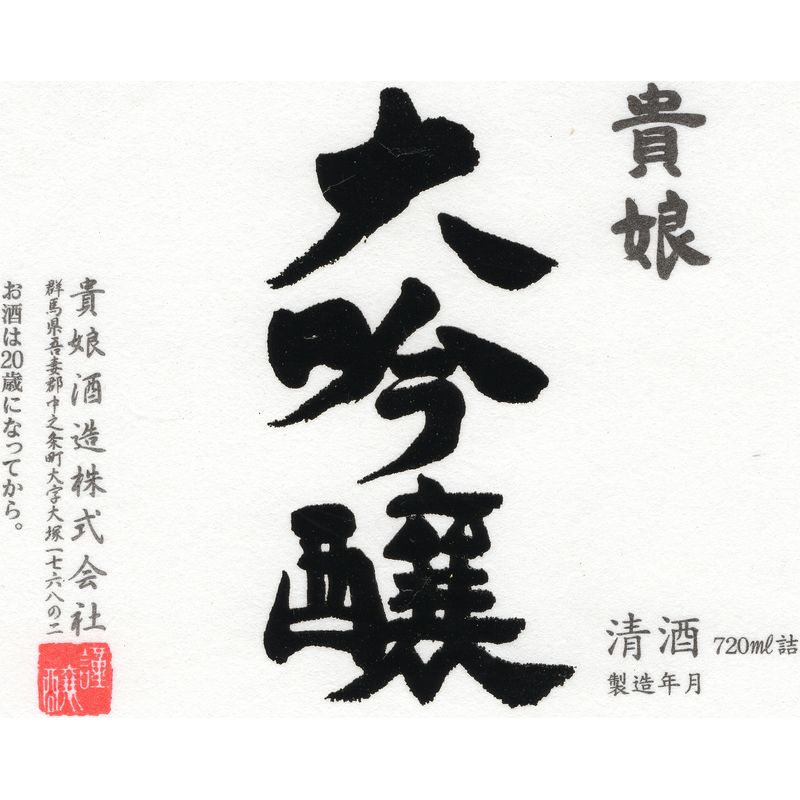 貴娘
大吟醸
清酒 720ml詰
製造年月
貴娘酒造株式会社
群馬県吾妻郡中之条町大字大塚一七六八の二
お酒は20歳になってから。
謹醸